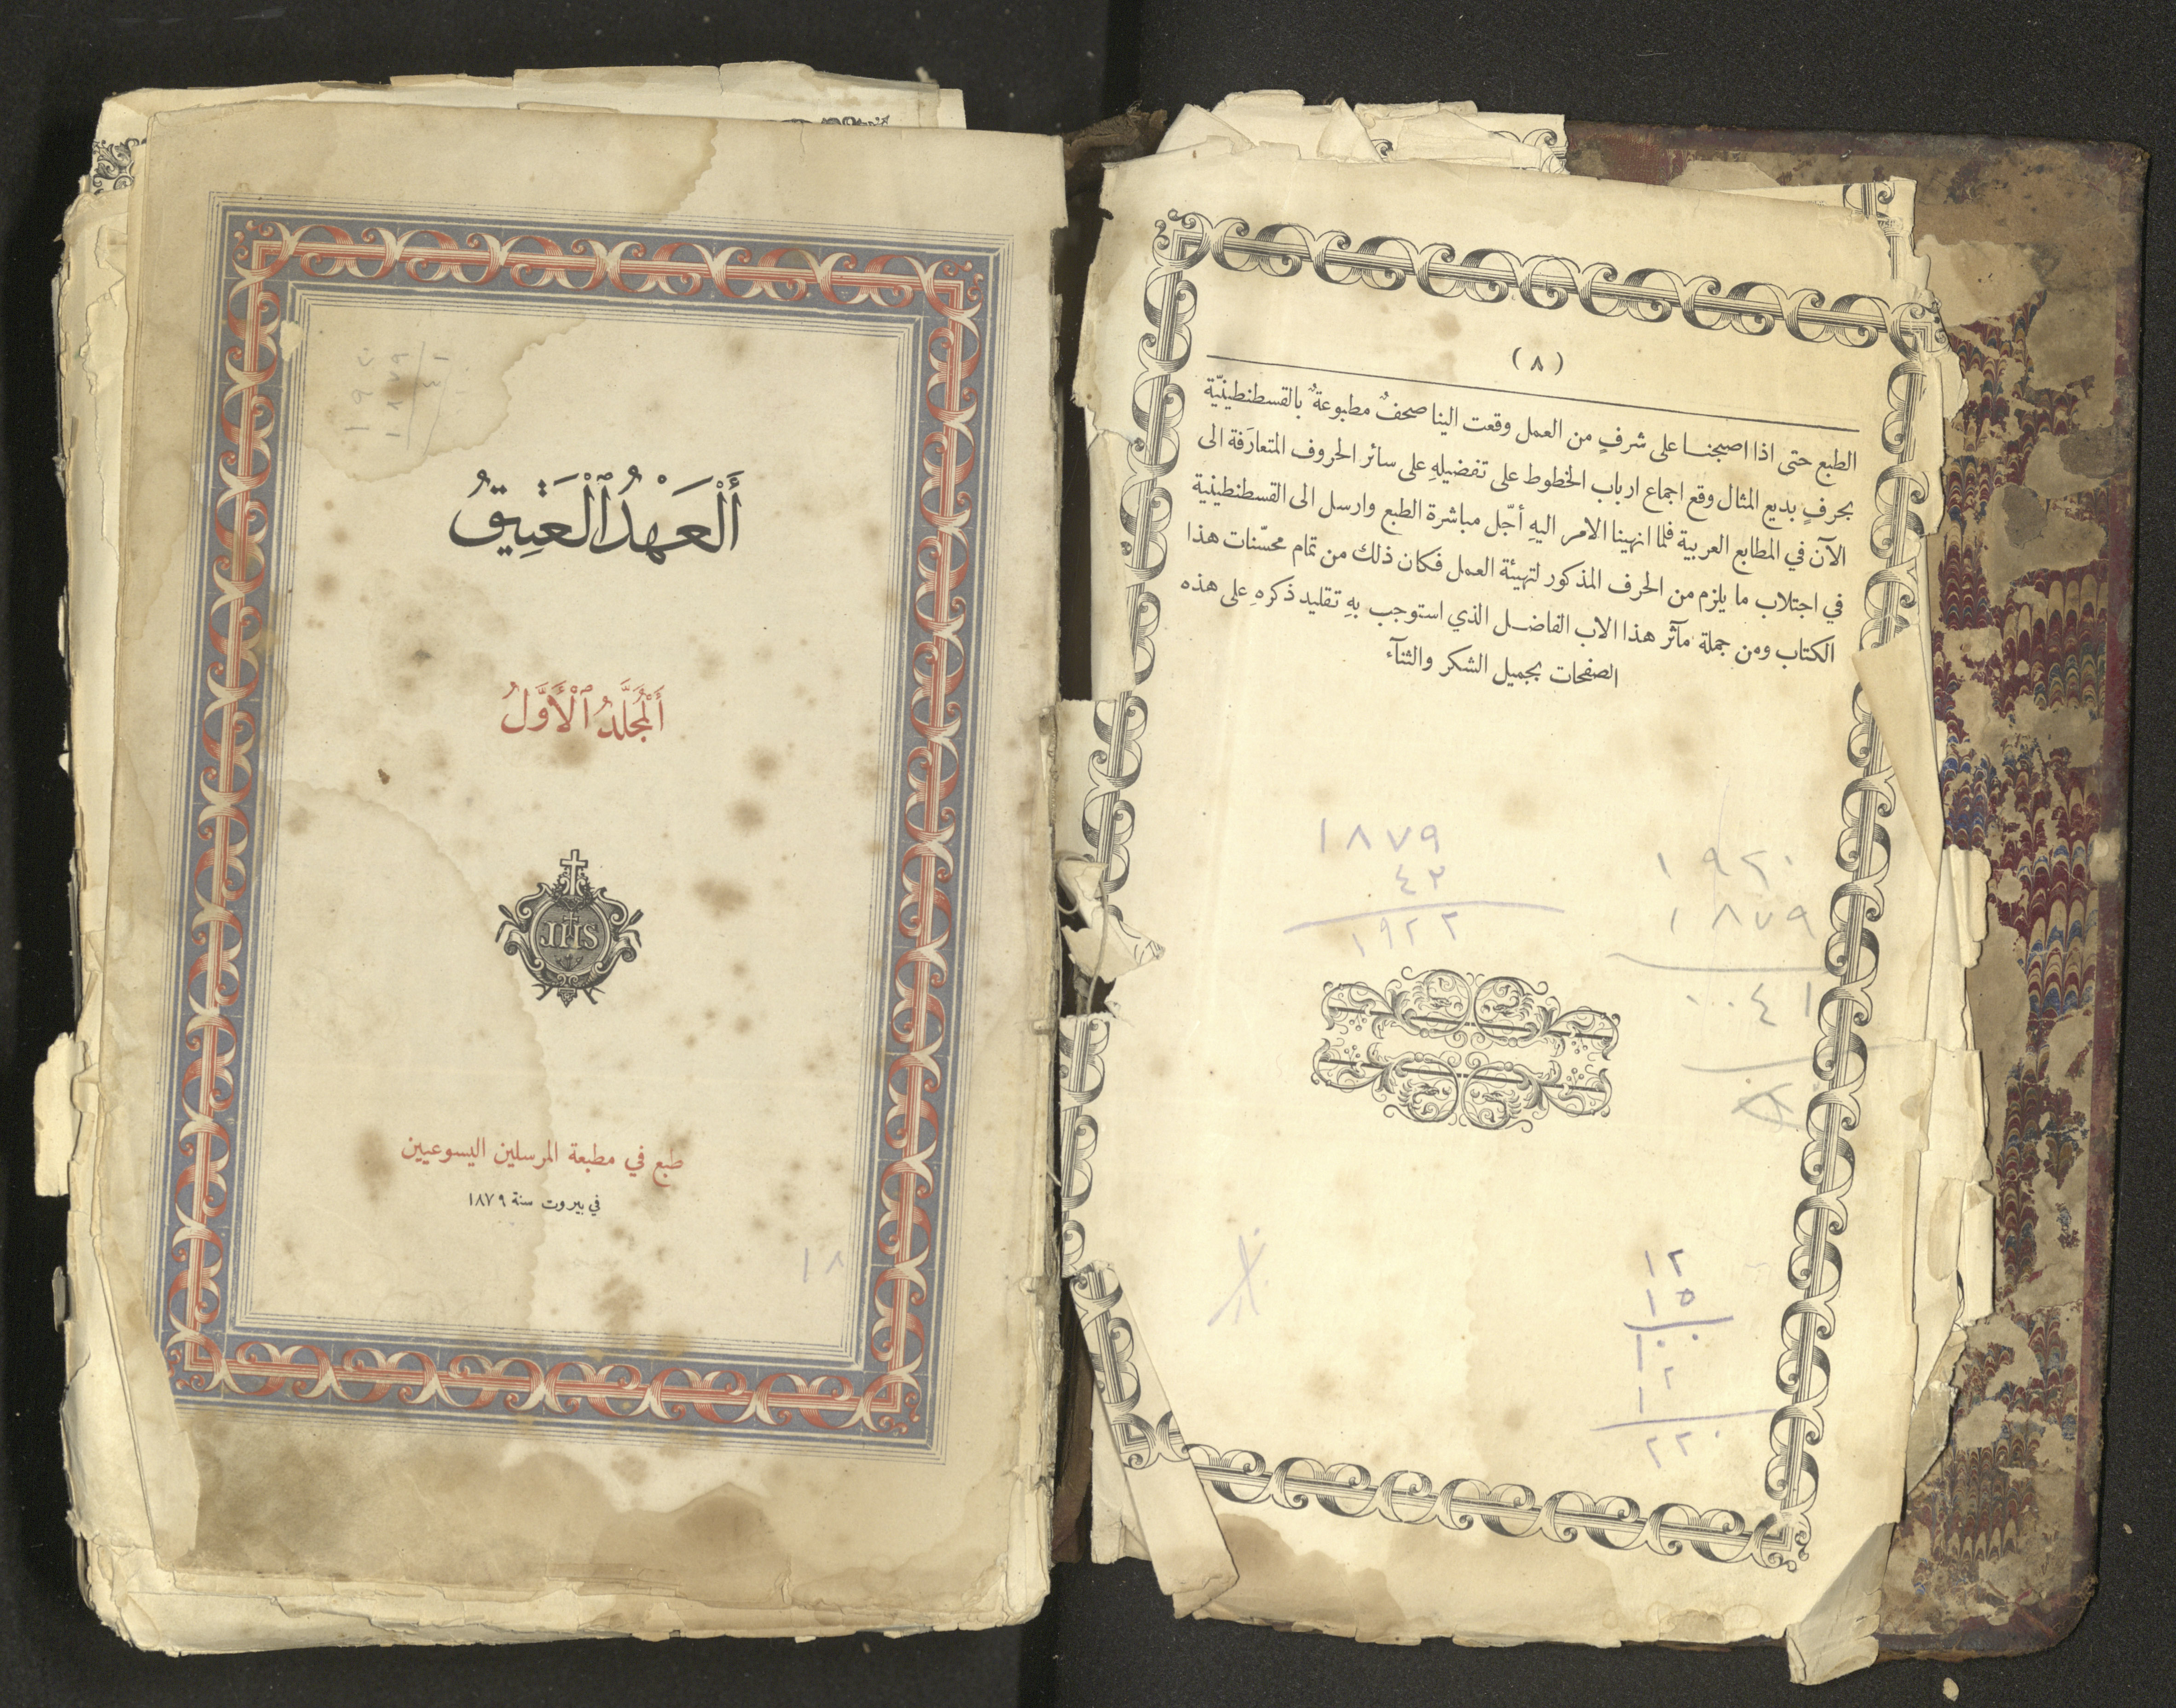 (٨)
الطبع حتى اذا اصبحنا على شرفٍ من العمل وقعت الينا صحفٌ مطبوعةٌ بالقسطنطينيّة
بحرفٍ بديع المثال وقع اجماع ارباب الخطوط على تفضيلهِ على سائر الحروف المتعارَفة الى
الآن في المطابع العربية فلما انهينا الامر اليهِ أجّل مباشرة الطبع وارسل الى القسطنطينية
في اجتلاب ما يلزم من الحرف المذكور لتهيئة العمل فكان ذلك من تمام محسّنات هذا
الكتاب ومن جملة مآثر هذا الاب الفاضل الذي استوجب بهِ تقليد ذكرهِ على هذه
الصفحات بجميل الشكر والثنآء
١٩٢٠
١٨٧٩
٠٠٤١
١٨٧٩
٤٣
١٩٢٢
١٢
١٥
١٠٠
١٢
٢٢٠
أَلْعَهْدُ ٱلْعَتِيقُ
أَلْمُجَلَّدُ ٱلْأَوَّلُ
JHS
طبع في مطبعة المرسلين اليسوعيين
في بيروت سنة ١٨٧٩
١٨